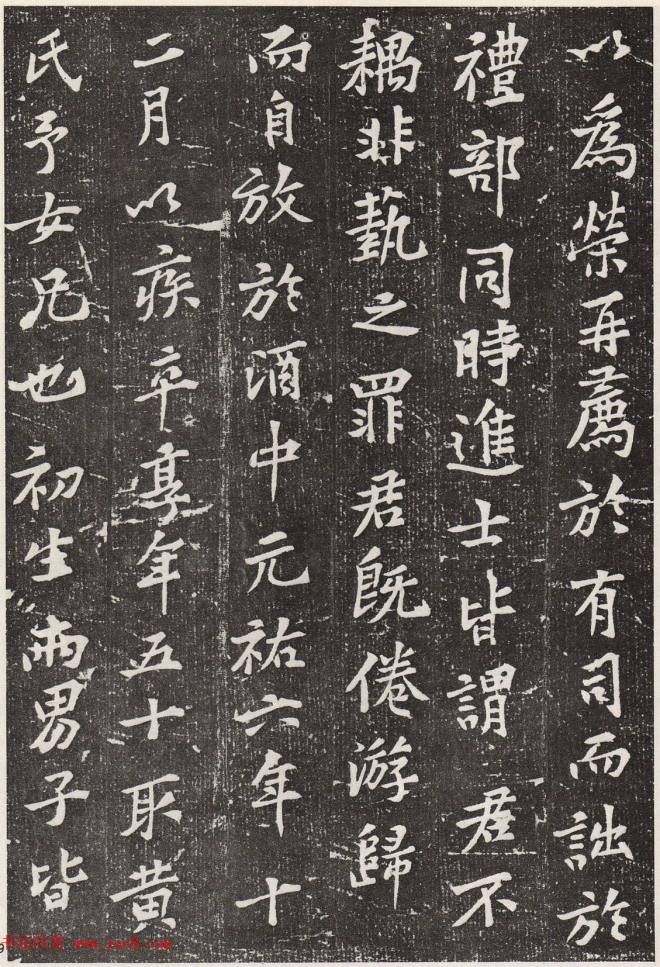 以為榮再薦於有司而詘於
禮部同時進士皆謂君不
耦非藝之罪君既倦游歸
而自放於酒中元祐六年十
二月以疾卒享年五十取黄
氏予女兄也初生兩男子皆
www.yac8.com